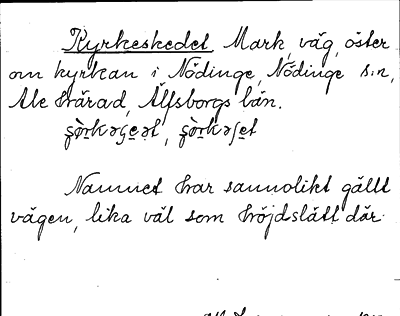 Kyrkeskedet Mark, väg, öster
om kyrkan i Nödinge, Nödinge s:n,
Ale härad, Älfsborgs län.
Namnet har sannolikt gällt
vägen, lika väl som höjdslätt där.